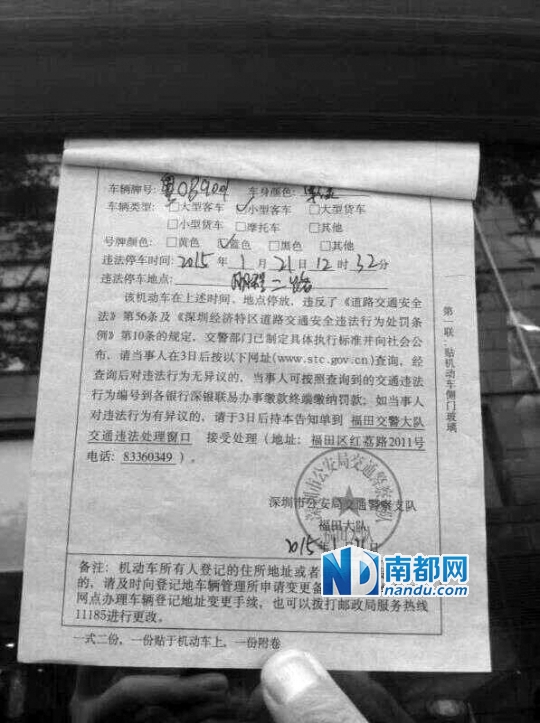 车辆牌号: 车身颜色:
车辆类型: □大型客车 ☑小型客车 □大型货车
□小型货车 □摩托车 □其他
号牌颜色: □黄色 ☑蓝色 □黑色 □其他
违法停车时间: 2015 年 1 月 21 日 12 时 32 分
违法停车地点:
该机动车在上述时间、地点停放，违反了《道路交通安全
法》第56条及《深圳经济特区道路交通安全违法行为处罚条
例》第10条的规定，交警部门已制定具体执行标准并向社会公
布，请当事人在3日后按以下网址(www.stc.gov.cn)查询，经
查询后对违法行为无异议的，当事人可按照查询到的交通违法
行为编号到各银行深银联易办事缴款终端缴纳罚款；如当事人
对违法行为有异议的，请于3日后持本告知单到 福田交警大队
交通违法处理窗口 接受处理（地址： 福田区红荔路2011号
电话： 83360349 ）。
深圳市公安局交通警察支队
福田大队
2015年1月21日
深圳市公安局交通警察支队
备注：机动车所有人登记的住所地址或者
的，请及时向登记地车辆管理所申请变更备
网点办理车辆登记地址变更手续，也可以拨打邮政局服务热线
11185进行更改。
一式二份，一份贴于机动车上，一份附卷
第一联：贴机动车侧门玻璃
N 南都网
nandu.com